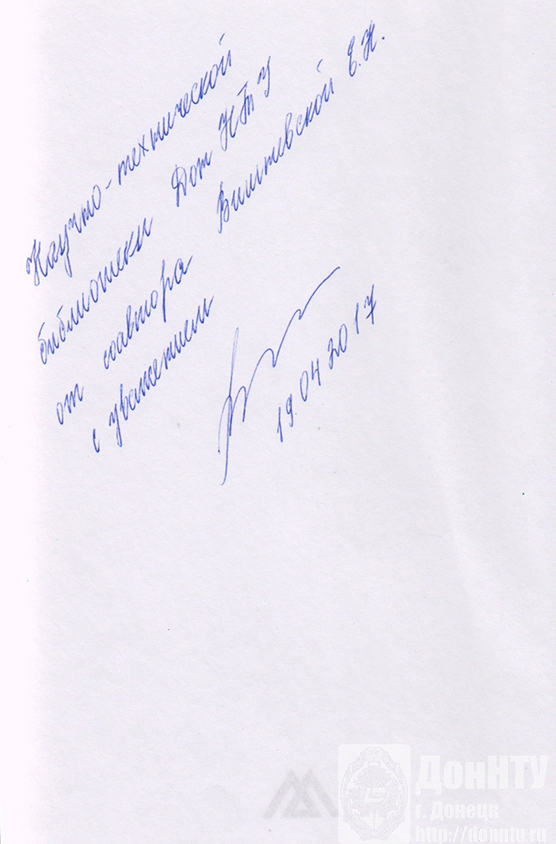 Научно-технической
библиотеки Дон НТУ
от соавтора Вишневской Е.Н.
с уважением
19.04 2017
ДонНТУ
г. Донецк
http://donntu.ru